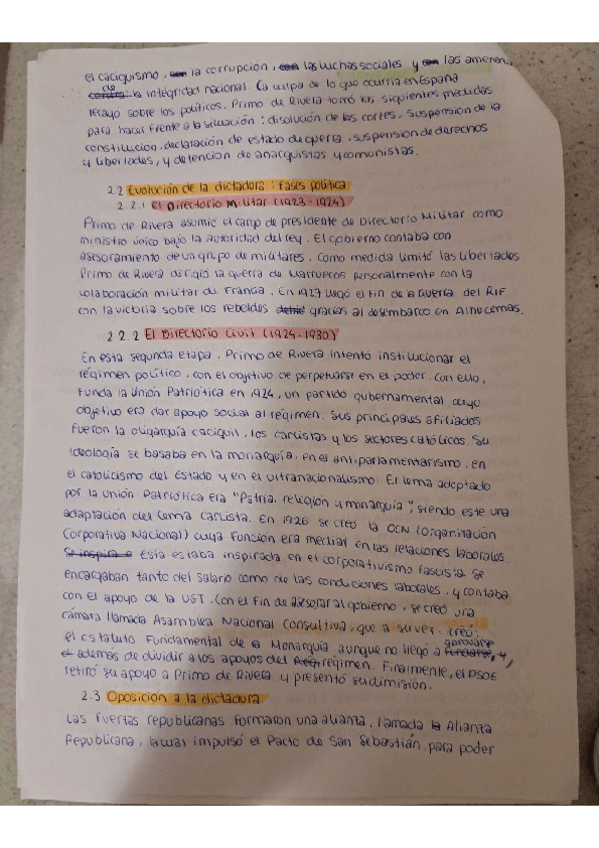 el caciquismo, la corrupcion, las luchas sociales y las amenen.
de la integridad nacional. La culpa de lo que ocurria en España
recayo sobre los politicos. Primo de Rivera tomó las siguientes medidas
para hacer frente a la situación: disolución de las cortes. Suspension de la
constitucion, declaración de estado de guerra, suspension de derechos
y libertades, y detencion de anarquistas y comunistas.
2.2 Evolución de la dictadura: fases política
2.2.1 El Directorio Militar (1923-1924)
Primo de Rivera asumió el cargo de presidente de Directorio Militar como
ministro único bajo la autoridad del rey. El gobierno contaba con
asesoramiento de un grupo de militares. Como medida limitó las libertades
Primo de Rivera dirigió la guerra de Marruecos personalmente con la
colaboración militar de Francia. En 1927 llegó el fin de la Guerra del RIF
con la victoria sobre los rebeldes gracias al desembarco en Alhucemas.
2.2.2 El Directorio Civil (1924-1930)
En esta segunda etapa, Primo de Rivera intentó institucionar el
régimen político, con el objetivo de perpetuarse en el poder. Con ello,
funda la Unión Patriótica en 1924, un partido gubernamental cuyo
objetivo era dar apoyo social al régimen. Sus principales afiliados
fueron la oligarquía caciquil, los carlistas y los sectores católicos. Su
ideología se basaba en la monarquía, en el antiparlamentarismo, en
el catolicismo del Estado y en el ultranacionalismo. El lema adoptado
por la Unión Patriótica era "Patria, religion y monarquia", siendo este una
adaptación del lema carlista. En 1926 se creó la OCN (Organización
Corporativa Nacional) cuya función era mediar en las relaciones laborales.
Se inspira e Esta estaba inspirada en el corporativismo fascista. Se
encargaban tanto del salario como de las condiciones laborales. y contaba
con el apoyo de la UGT. Con el fin de asesorar al gobierno, se creó una
cámara llamada Asamblea Nacional Consultiva, que a su vez, creó:
el Estatuto Fundamental de la Monarquía aunque no llegó a aprovarse
además de dividir a los apoyos del régimen. Finalmente, el PSOE
retiró su apoyo a Primo de Rivera y presentó su dimisión.
2.3 Oposición a la dictadura.
Las fuertas republicanas formaron una alianza, llamada la Alianza
Republicana, la cual impulsó el Pacto de San Sebastián, para poder